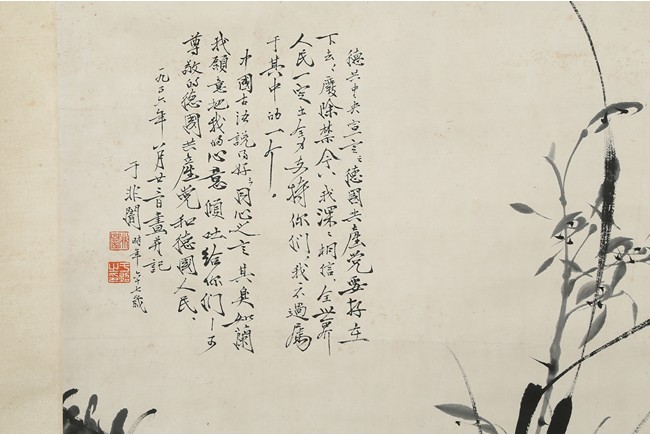 德共中央宣言：德國共產党要存在
下去，廢除禁令，我深深相信全世界
人民一定出全力支持你们，我不過屬
于其中的一个。
中國古話說得好：同心之言其臭如蘭
我願意把我的心意傾吐給你们——可
尊敬的德國共產党和德國人民。
一九五六年八月廿三日畫并記
于非闇 時年六十七歲